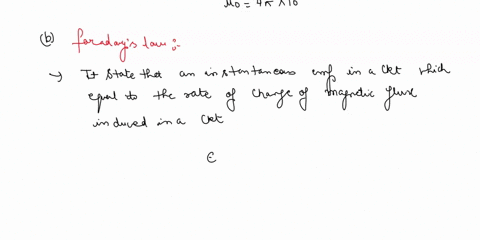 μ0 = 4π × 10
(b) faraday's law :-
→ It state that an instantaneous emf in a ckt which
equal to the rate of change of magnetic flux
induced in a ckt
ε